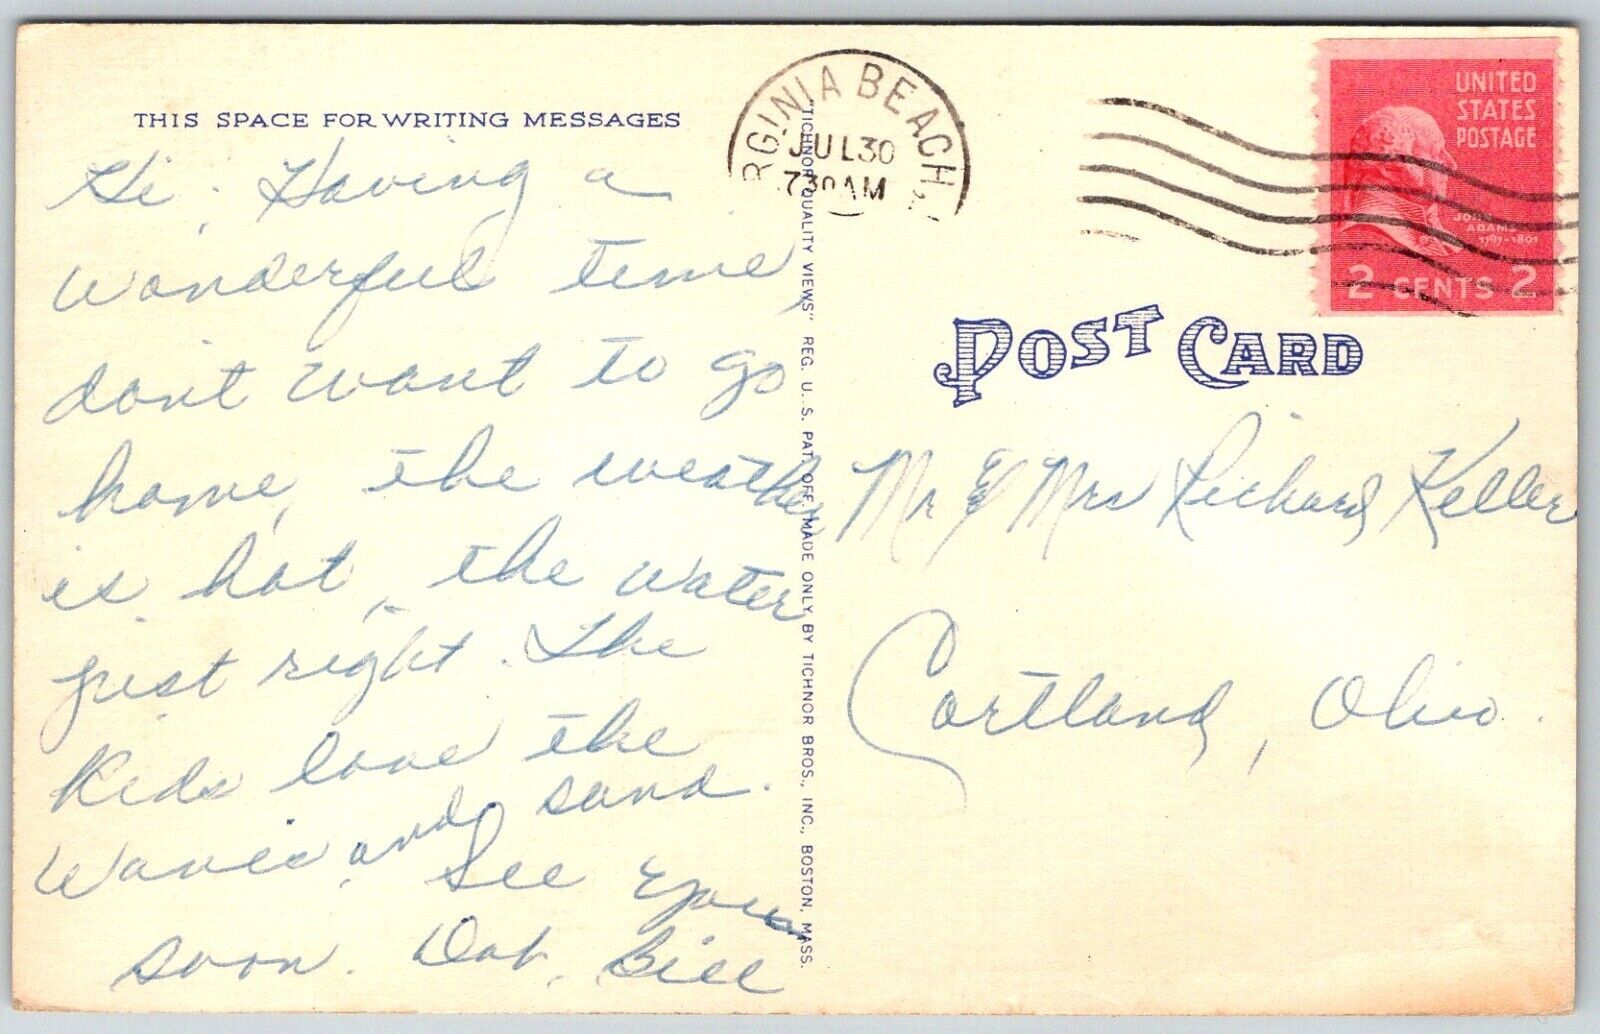 THIS SPACE FOR WRITING MESSAGES
Hi, Having a
wonderful time,
don't want to go
home, the weather
is hot, the water
just right. The
Kids love the
waves and sand.
See you
soon. Dot, Bill
"TICHNOR QUALITY VIEWS" REG. U. S. PAT. OFF. MADE ONLY BY TICHNOR BROS., INC., BOSTON, MASS.
RGINIA BEACH
JUL 30
730 AM
UNITED
STATES
POSTAGE
JOHN
ADAMS
1797-1801
2 CENTS 2
POST CARD
Mr & Mrs Richard Keller
Cortland, Ohio.